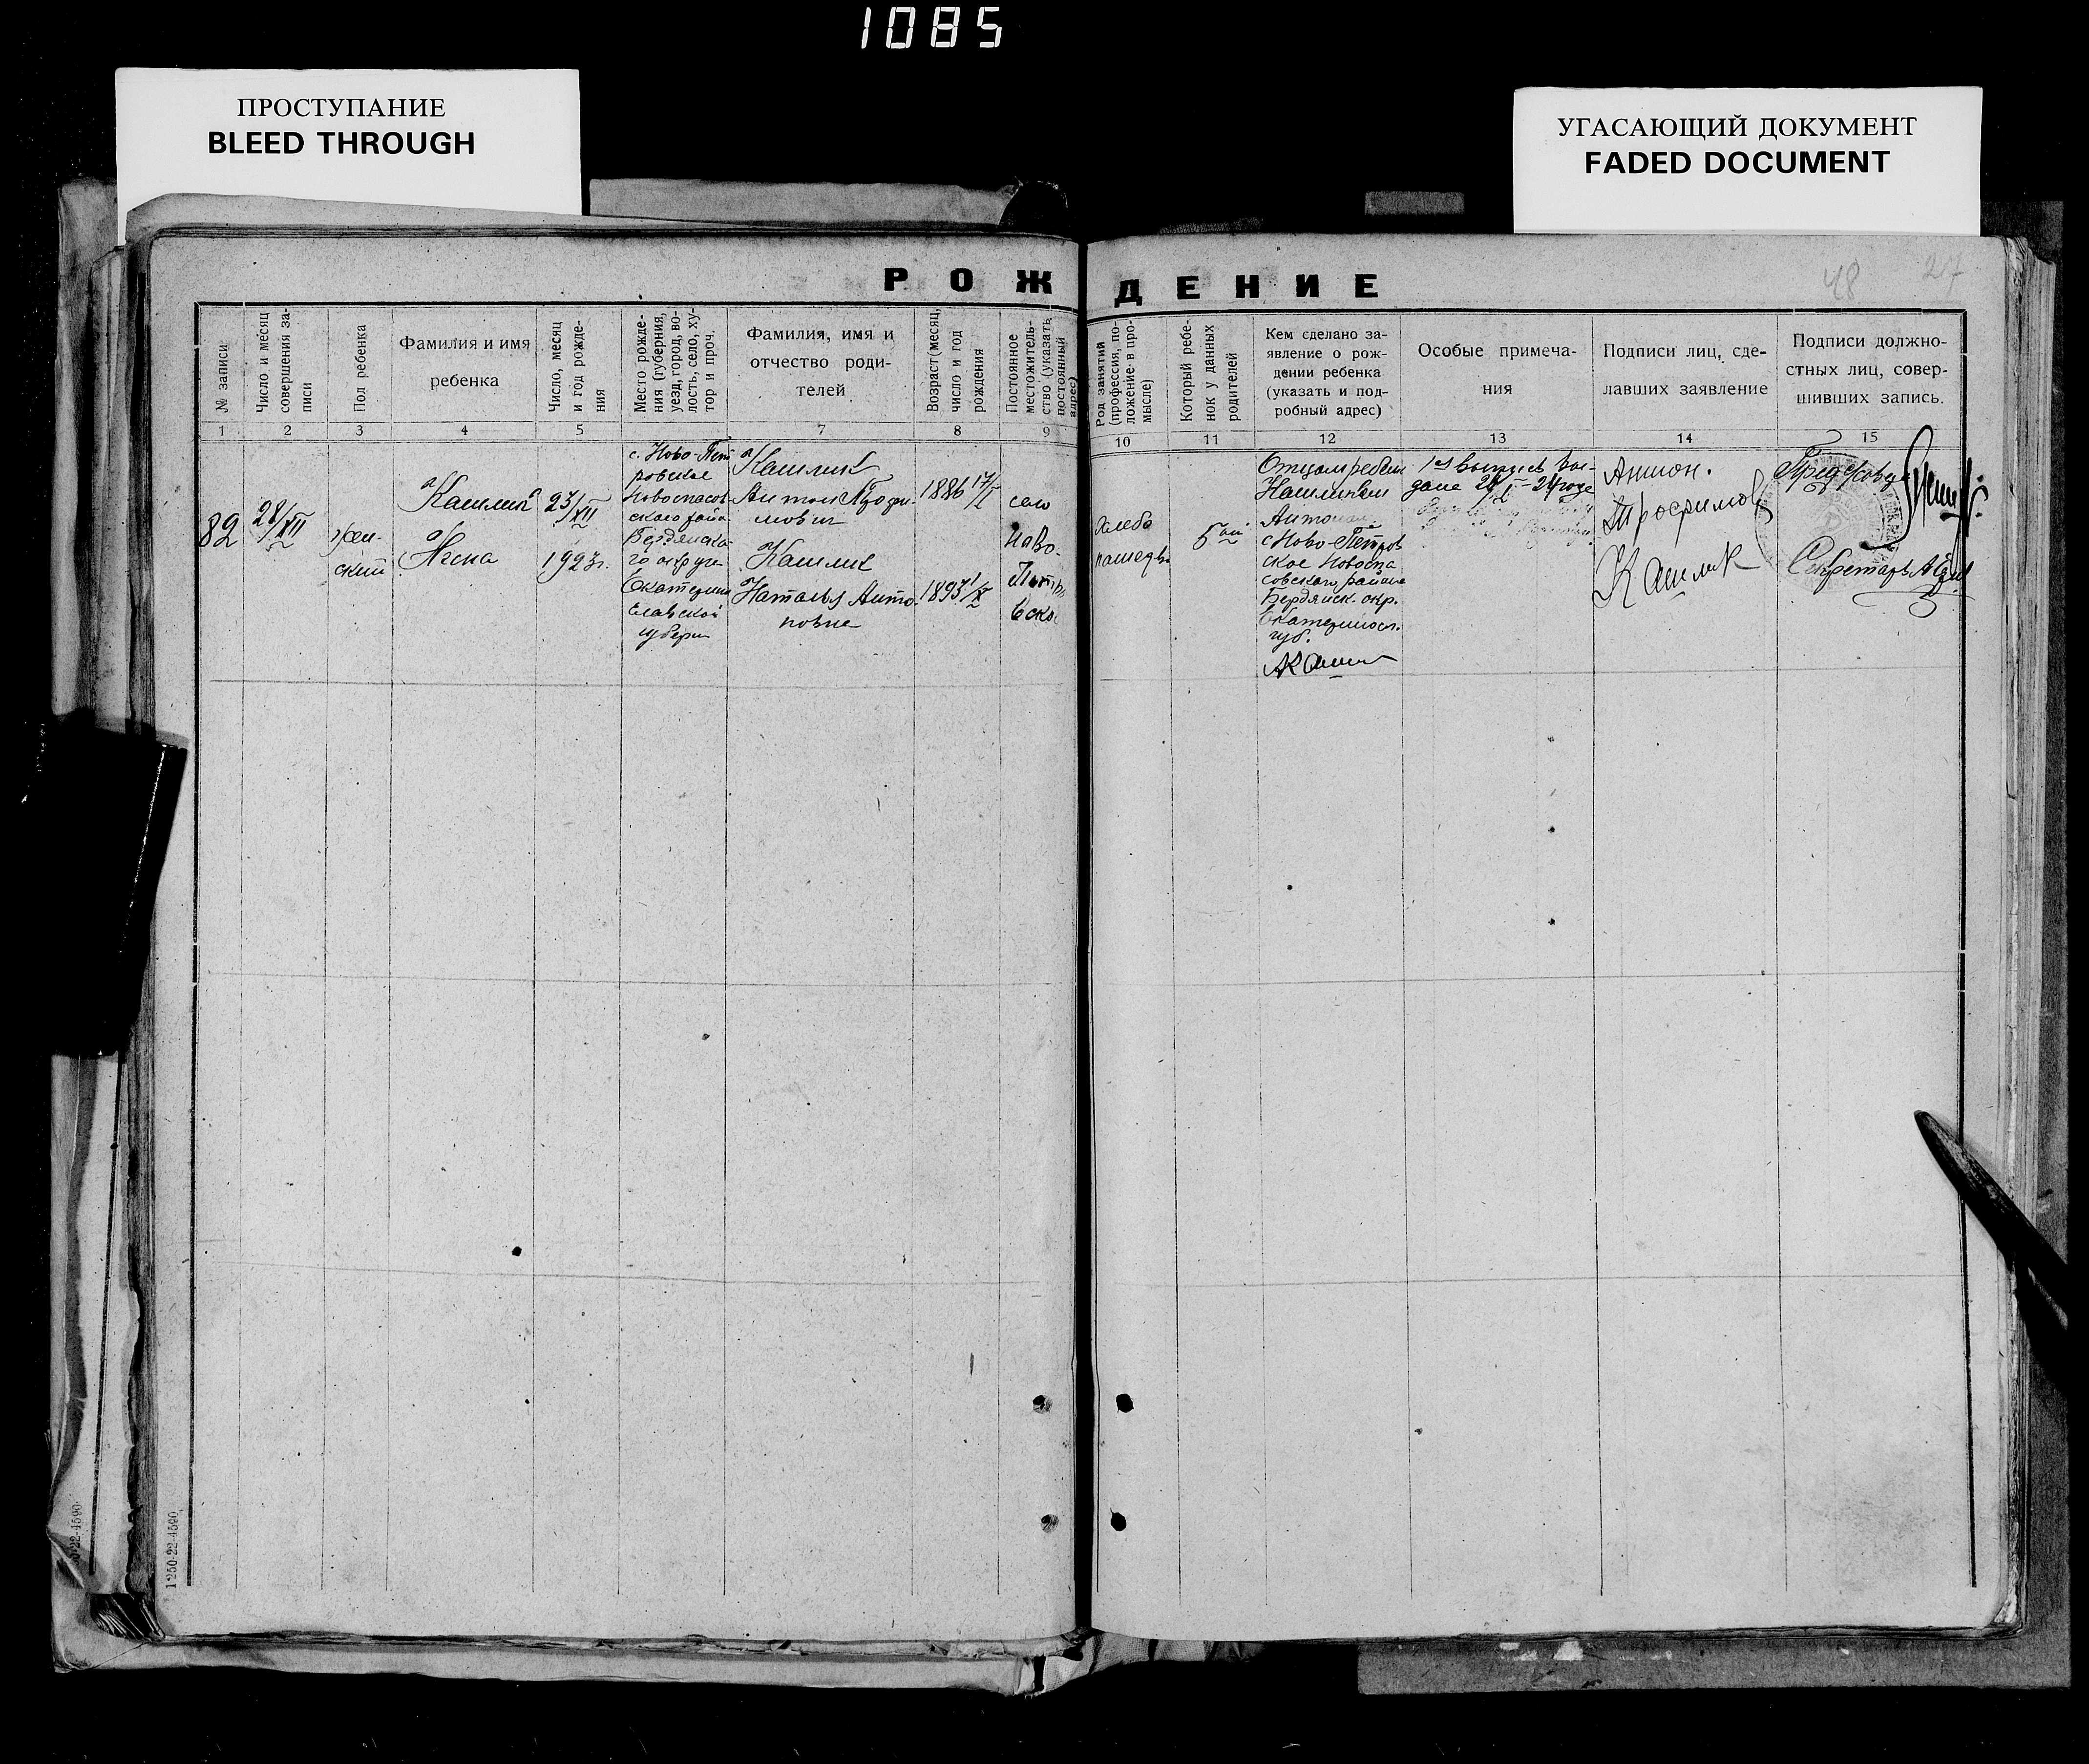 1085
ПРОСТУПАНИЕ
BLEED THROUGH
УГАСАЮЩИЙ ДОКУМЕНТ
FADED DOCUMENT
РОЖДЕНИЕ
48
27
№ записи
Число и месяц
совершения за-
писи
Пол ребенка
Фамилия и имя
ребенка
Число, месяц
и год рожде-
ния
Место рожде-
ния (губерния,
уезд, город, во-
лость, село, ху-
тор и проч.
Фамилия, имя и
отчество роди-
телей
Возраст (месяц,
число и год
рождения
Постоянное
местожитель-
ство (указать
постоянный
адрес)
Род занятий
(профессия, по-
ложение в про-
мысле)
Который ребе-
нок у данных
родителей
Кем сделано за-
явление о рож-
дении ребенка
(указать и под-
робный адрес)
Особые примеча-
ния
Подписи лиц, сде-
лавших заявление
Подписи должно-
стных лиц, совер-
шивших запись.
1 2 3 4 5 7 8 9 10 11 12 13 14 15
82
28/XII
жен-
ский
Кашлик
23/XII
1923г.
с. Ново-Пет
ровское
Новоспасов
ского райо
Бердянско-
го округа
Екатерино
славской
губерн
Кашлик
Антон Трофи-
мович
Кашлик
Наталья Анто-
новна
1886 17/I
1893 1/X
село
Ново-
Петро
вско
хлебо
пашедв
5 ый
Отцом ребен
Кашликом
Антоном
с Ново-Петров
ское Новоспа
совского района
Бердянск. окр.
Екатериносл.
губ.
АКашлик
1ая выпись вы-
дана 24 года
Антон.
Трофимов
Кашлик
Пред с/совета
Секретарь
1250-22-4590